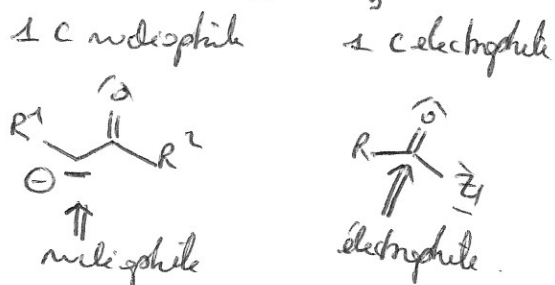 1 C nucléophile
1 C électrophile
O
O
R¹
R²
R
Z₁
⊖
nucléophile
électrophile.